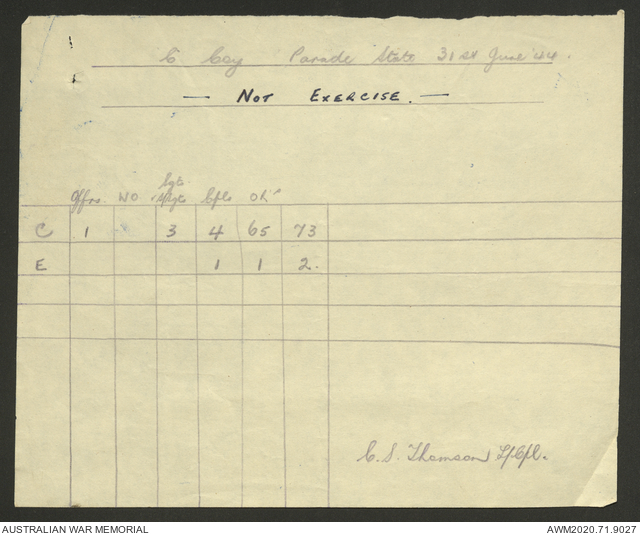 C Coy Parade State 31st June 44.
— NOT EXERCISE. —
Offrs. WO Sgts S/Sgts Cpls ORs
C 1 3 4 65 73
E 1 1 2.
C. S. Thomson L/Cpl.
AUSTRALIAN WAR MEMORIAL
AWM2020.71.9027